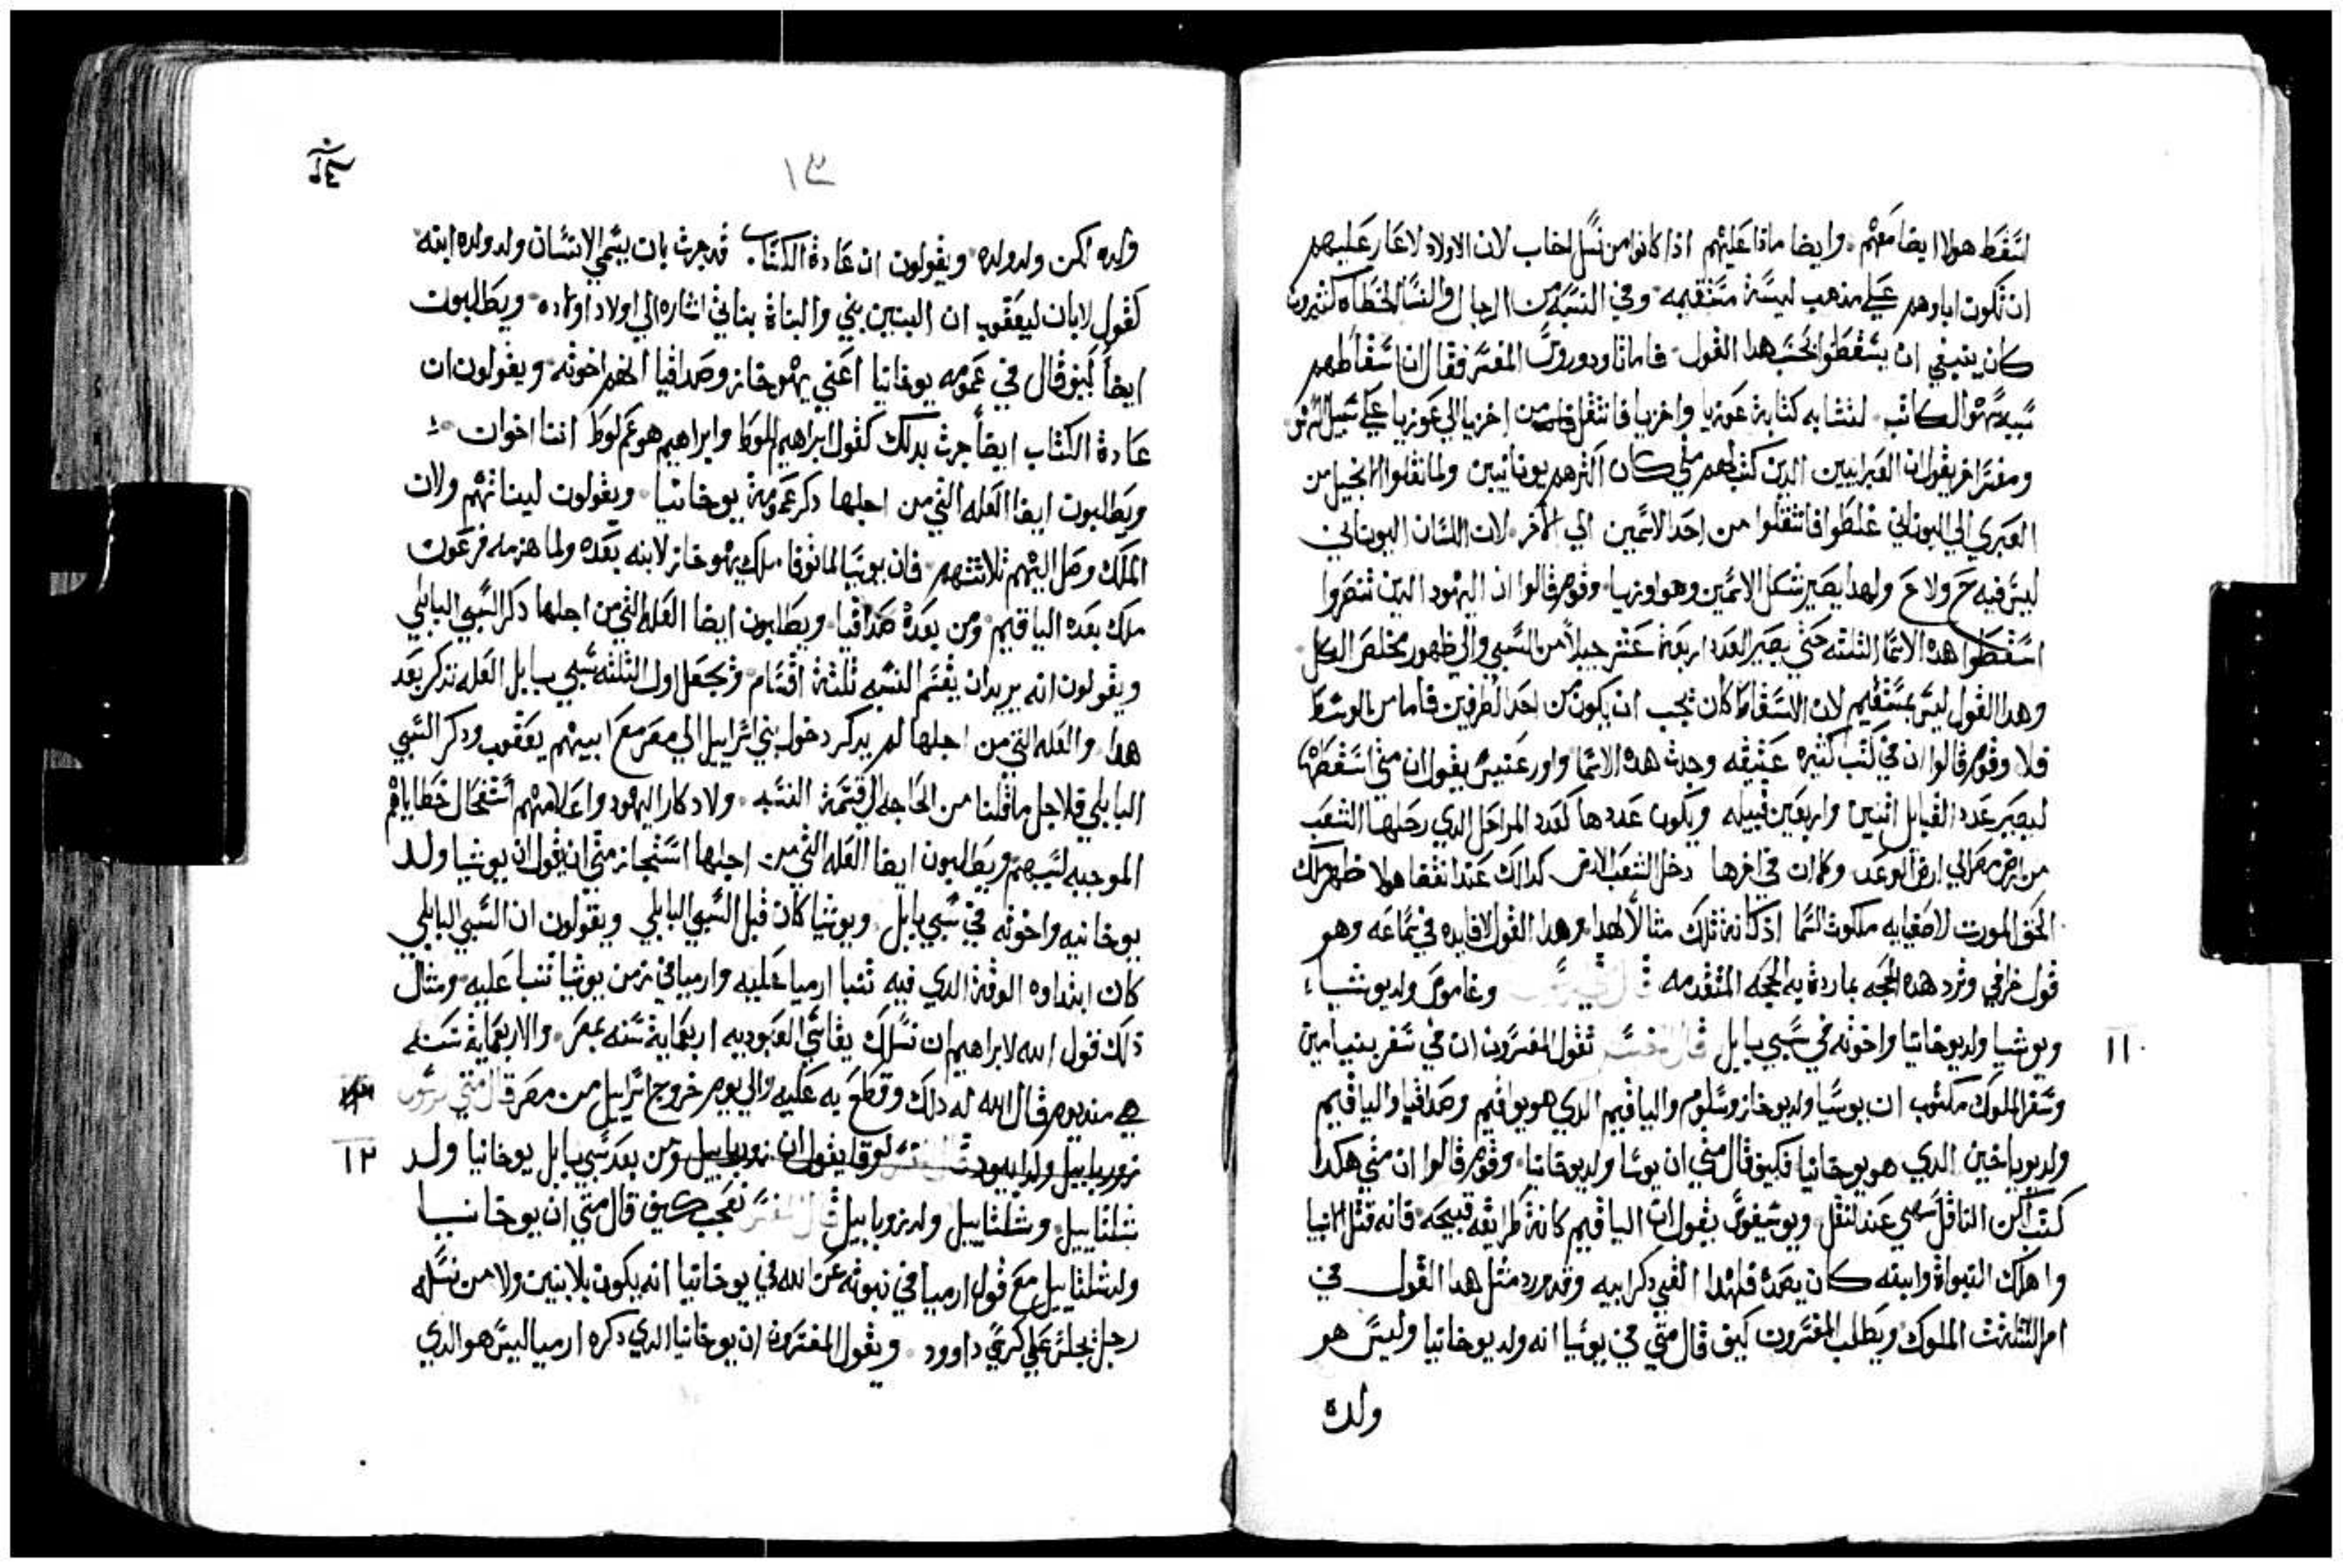 لتسقط هولا ايضا معهم. وايضا ماذا عليهم اذا كانوا من نسل اخاب لان الاولاد لا عار عليهم
ان تكون اباوهم علي مذهب ليسة مستقيمه. وفي النسبه من الرجال والنسا الخطاه كثيرون
كان ينبغي ان يسقطوا بحسب هدا القول. فاما تاودوروس المفسر فقال ان اسقاطهم
سببه سهو الكاتب. لتشابه كتابة عوزيا واخزيا فانتقل من اخزيا الي عوزيا علي سبيل السهو
ومفسر اخر يقول ان العبرانيين الدين كتب لهم متي كان اكثرهم يونانيين ولما نقلوا الانجيل من
العبري الي اليوناني غلطوا فانتقلوا من احد الاسمين الي الاخر. لان اللسان اليوناني
ليس فيه ح ولا ع ولهدا يصير شكل الاسمين وهو اوزيا. وقوم قالوا ان اليهود الدين تنصروا
اسقطوا هده الاسما الثلثه حتي يصير العدد اربعة عشر جيلاً من السبي والي ظهور مخلص الكل.
وهدا القول ليس بمستقيم لان الاسقاط كان يجب ان يكون من احد الطرفين فاما من الوسط
فلا وقوم قالوا ان في كتب كثيره عتيقه وجدت هده الاسما واورعنيس يقول ان متي اسقطها
ليصير عدد القبايل اثنين واربعين قبيله ويكون عددها كعدد المراحل الدي رحلها الشعب
من ارض مصر الي ارض الوعد وكما ان في اخرها دخل الشعب الارض كدالك عند انقضا هولا ظهر ملك
الحق المورت لاصفيايه ملكوت السما اد كانة تلك مثالاً لهدا وهدا القول لا فايده في سماعه وهو
قول خرافي وترد هده الحجه بما ردة به الحجه المتقدمه قال وغاموص ولد يوشيا،
ويوشيا ولد يوخانيا واخوته في سبي بابل قال المفسر تقول المفسرون ان في سفر بنيامين
وسفر الملوك مكتوب ان يوسيا ولد يوخاز وسلوم والياقيم الدي هو يواقيم وصداقيا والياقيم
ولد يوياخين الدي هو يوخانيا فكيف قال متي ان يوسا ولد يوخانيا. وقوم قالوا ان متي هكدا
كتب لكن الناقل سهي عند النقل ويوسيفوس يقول ان الياقيم كانة طرايقه قبيحه فانه قتل الانبيا
واهلك النبواة وابيه كان بعده فلهدا القي دكر ابيه وقد مرر مثل هدا القول في
امر الثلثت الملوك ويطلب المفسرون كيف قال متي في يوسيا انه ولد يوخانيا وليس هو
ولده
١١
١٣
ولده لكن ولد ولده. ويقولون ان عادة الكتاب. قد جرت بان يسمي الانسان ولد ولده ابنه.
كقول لابان ليعقوب ان البنين بني والبناة بناتي اشاره الي اولاد اولاده. ويطالبون
ايضاً كيف قال في عمومه يوخانيا اعني يهوخاز وصداقيا انهم اخوته. ويقولون ان
عادة الكتاب ايضاً جرت بدلك كقول ابراهيم للوط وابراهيم هو عم لوط اننا اخوان.
ويطلبون ايضا العله التي من اجلها دكر عمومة يوخانيا. ويقولون لينا تهم ولان
الملك وصل اليهم ثلاثتهم. فان يوسيا لما توفا. ملك يهوخاز لابنه بعده ولما هزمه فرعون
ملك بعده الياقيم. ومن بعده صداقيا. ويطلبون ايضا العله التي من اجلها دكر السبي البابلي
ويقولون انه يريد ان يقسم النسبه ثلثة اقسام. ويجعل اول الثلثه سبي بابل العله تدكر بعد
هدا. والعله التي من اجلها لم يدكر دخول بني اسراييل الي مصر مع ابيهم يعقوب ودكر السبي
البابلي فلاجل ما قلنا من الحاجه الي قسمة النسبه. ولادكار اليهود واعلامهم استفحال خطاياهم
الموجبه لسبيهم ويطلبون ايضا العله التي من اجلها استجاز متي ان يقول ان يوشيا ولد
يوخانيه واخوته في سبي بابل. ويوشيا كان قبل السبي البابلي ويقولون ان السبي البابلي
كان ابتداوه الوقة الدي فيه تنبا ارميا عليه وارميا في زمن يوشيا تنبا عليه. ومثال
دلك قول الله لابراهيم ان نسلك يقاسي العبوديه اربعماية سنه بمصر. والاربعماية سنه
هي مند يوم قال الله له دلك وقطع به عليه والي يوم خروج اسراييل من مصر قال متي
زوربابيل ولد ابيود قال المفسر لوقا يقول ان زوربابيل ومن بعد سبي بابل يوخانيا ولد
شلتاييل. وشلتاييل ولد زوربابيل قال المفسر نعجب كيف قال متي ان يوخانيا
ولد شلتاييل مع قول ارميا في نبوته عن الله في يوخانيا انه يكون بلا بنين ولا من نسله
رجل يجلس علي كرسي داوود. ويقول المفسرون ان يوخانيا الدي دكره ارميا ليس هو الدي
١٢